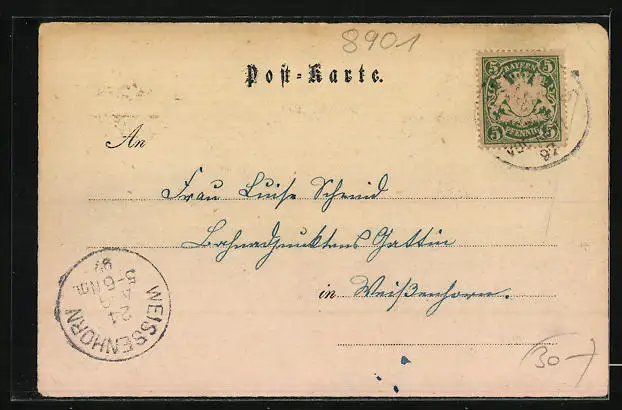 8901
Post-Karte.
5 BAYERN 5
5 PFENNIG 5
An
Frau Luise Schmid
Bahnadjunktens Gattin
in Weißenhorn.
WEISSENHORN
24
5-6 Nm.
97
(30-)